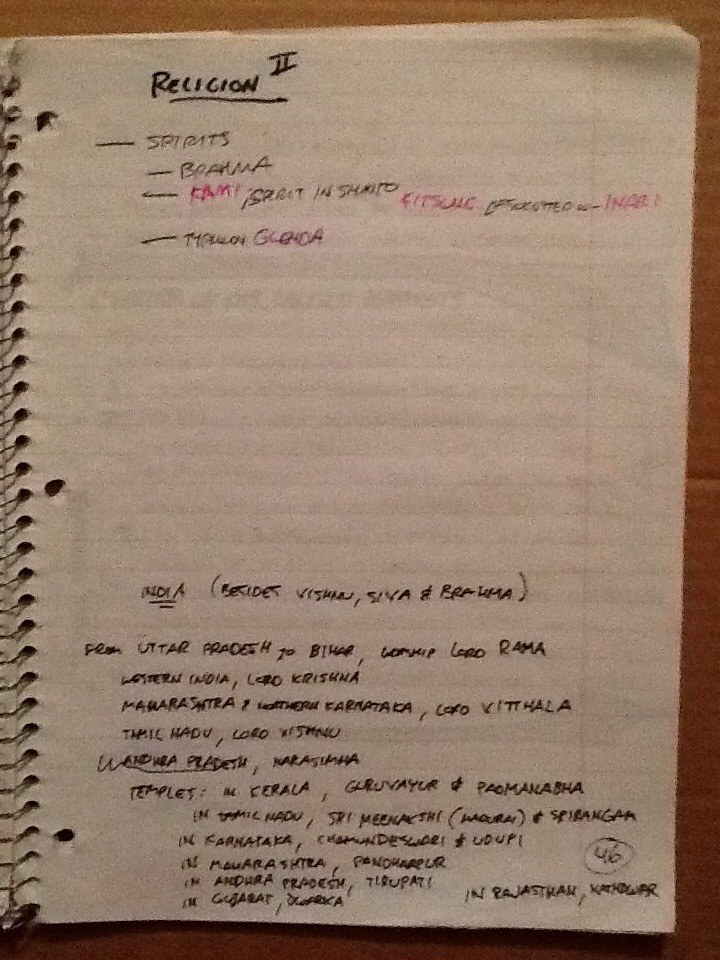 RELIGION II
— SPIRITS
— BRAHMA
— KAMI, SPIRIT IN SHINTO KITSUNE INARI
— GLENDA
INDIA (BESIDES VISHNU, SIVA & BRAHMA)
FROM UTTAR PRADESH TO BIHAR, WORSHIP LORD RAMA
WESTERN INDIA, LORD KRISHNA
MAHARASHTRA & NORTHERN KARNATAKA, LORD VITTHALA
TAMIL NADU, LORD VISHNU
ANDHRA PRADESH, NARASIMHA
TEMPLES: IN KERALA, GURUVAYUR & PADMANABHA
IN TAMIL NADU, SRI MEENAKSHI (MADURAI) & SRIRANGAM
IN KARNATAKA, CHAMUNDESWARI & UDUPI
IN MAHARASHTRA, PANDHARPUR
IN ANDHRA PRADESH, TIRUPATI
IN GUJARAT, DWARKA IN RAJASTHAN, NATHDWAR
46